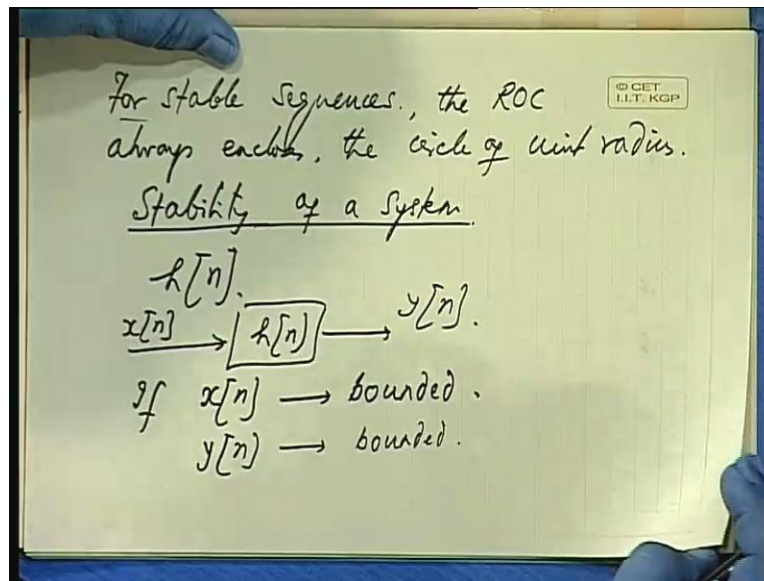 For stable sequences., the ROC
© CET
I.I.T. KGP
always encloses, the circle of unit radius.
Stability of a system.
h[n].
x[n] → h[n] → y[n].
If x[n] → bounded.
y[n] → bounded.